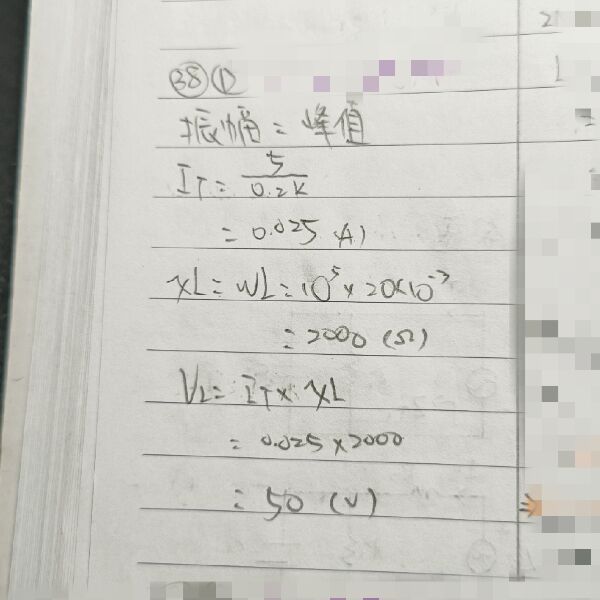 38 ①
振幅 = 峰值
IT = 5/0.2K
= 0.025 (A)
XL = WL = 10^5 × 20×10^-3
= 2000 (Ω)
VL = IT × XL
= 0.025 × 2000
= 50 (V)